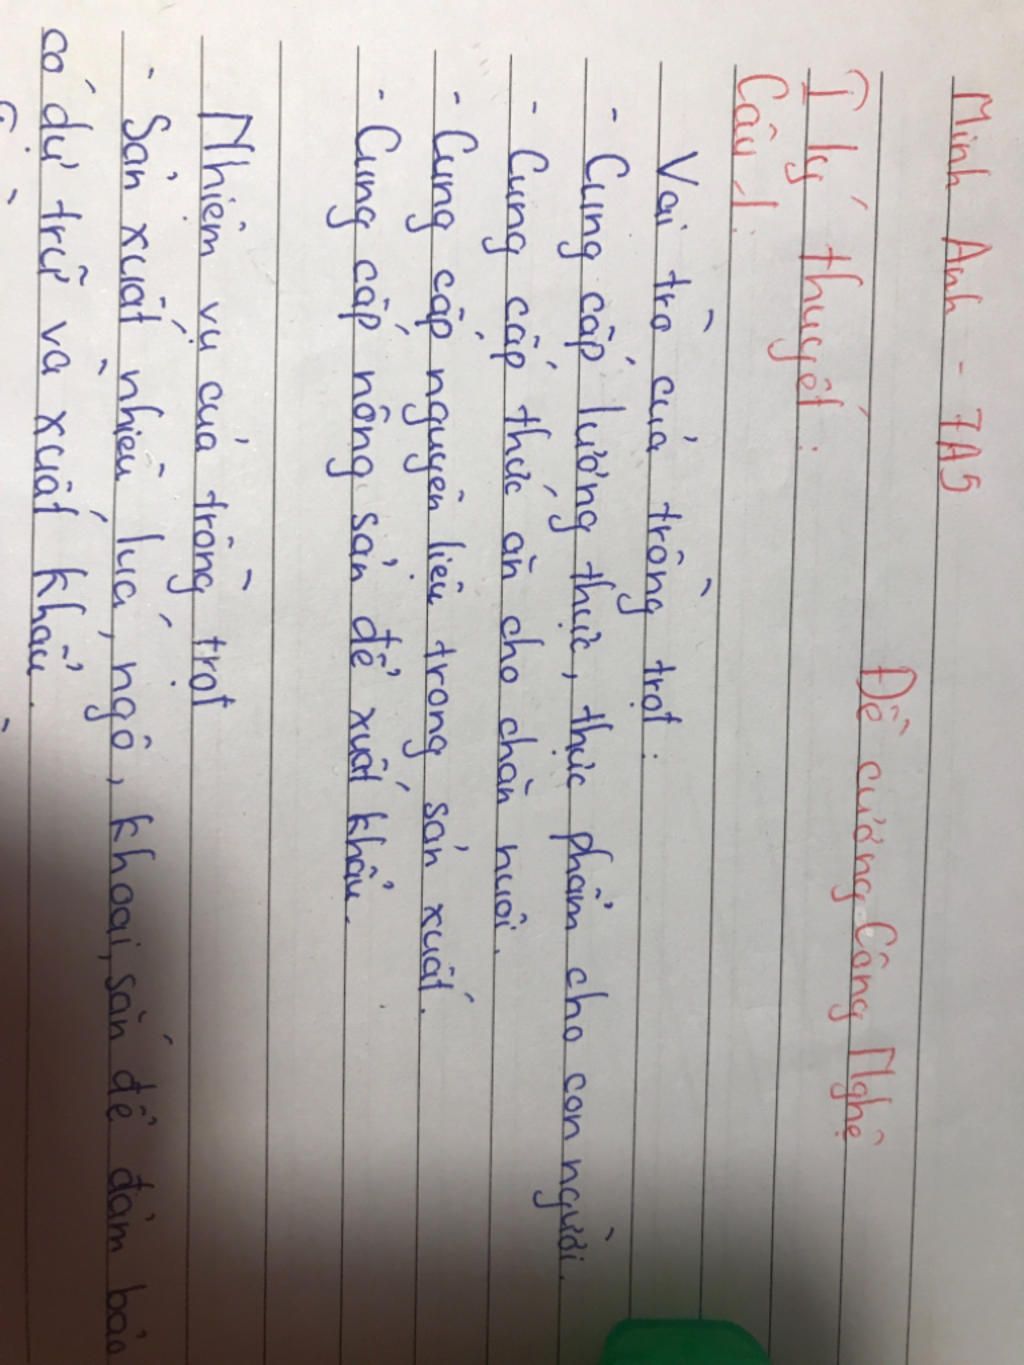 Minh Anh - 7A5
Đề cương Công Nghệ
I lý thuyết :
Câu 1 :
Vai trò của trồng trọt :
- Cung cấp lương thực, thực phẩm cho con người.
- Cung cấp thức ăn cho chăn nuôi.
- Cung cấp nguyên liệu trong sản xuất.
- Cung cấp nông sản để xuất khẩu.
Nhiệm vụ của trồng trọt
- Sản xuất nhiều lúa, ngô, khoai, sắn để đảm bảo
có dự trữ và xuất khẩu.